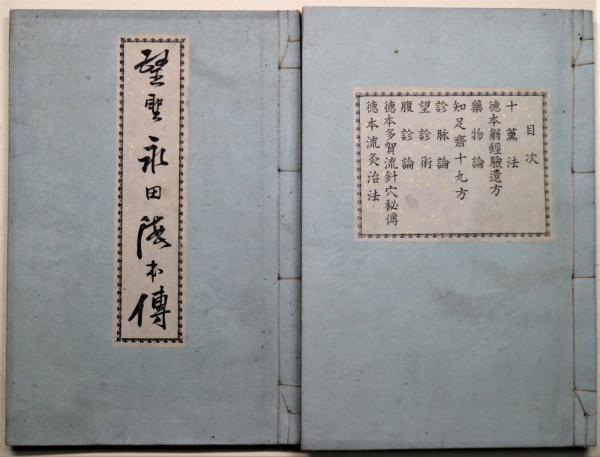 醫聖永田德本傳
目次
十薫法
德本翁經驗遺方
藥物論
知足齋十九方
診脉論
望診術
腹診論
德本多賀流針穴秘傳
德本流灸治法